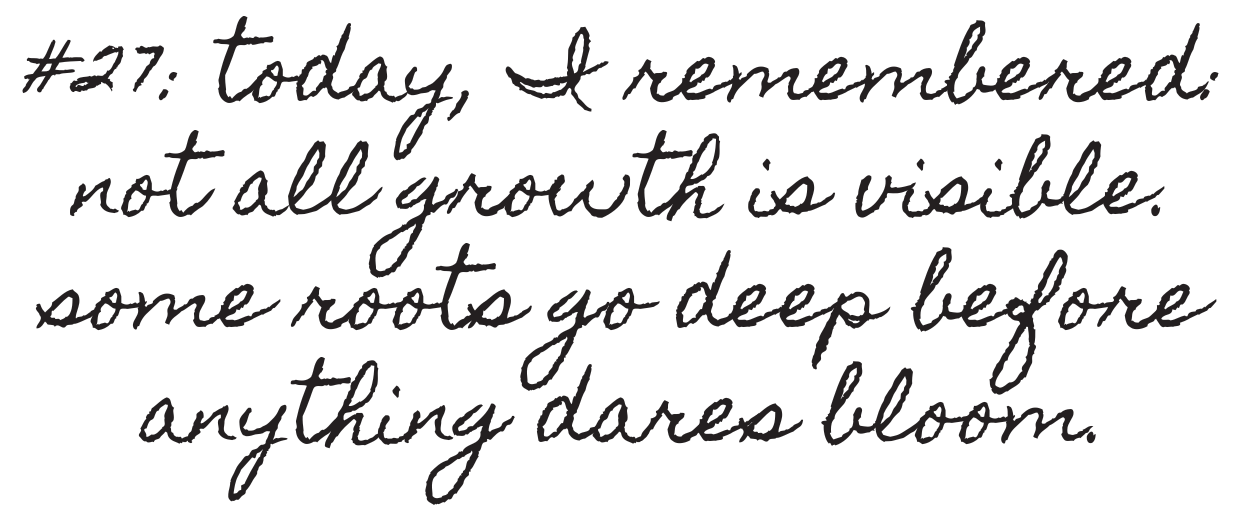 #27: today, I remembered:
not all growth is visible.
some roots go deep before
anything dares bloom.